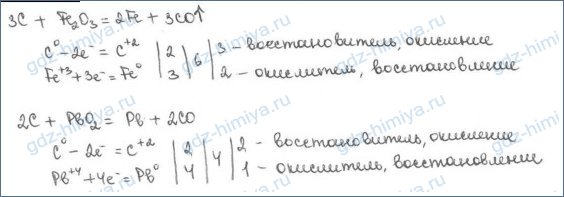 3C + Fe₂O₃ = 2Fe + 3CO↑
C⁰ - 2e⁻ = C⁺² | 2 | 6 | 3 - восстановитель, окисление
Fe⁺³ + 3e⁻ = Fe⁰ | 3 | | 2 - окислитель, восстановление
2C + PbO₂ = Pb + 2CO
C⁰ - 2e⁻ = C⁺² | 2 | 4 | 2 - восстановитель, окисление
Pb⁺⁴ + 4e⁻ = Pb⁰ | 4 | | 1 - окислитель, восстановление
gdz-himiya.ru